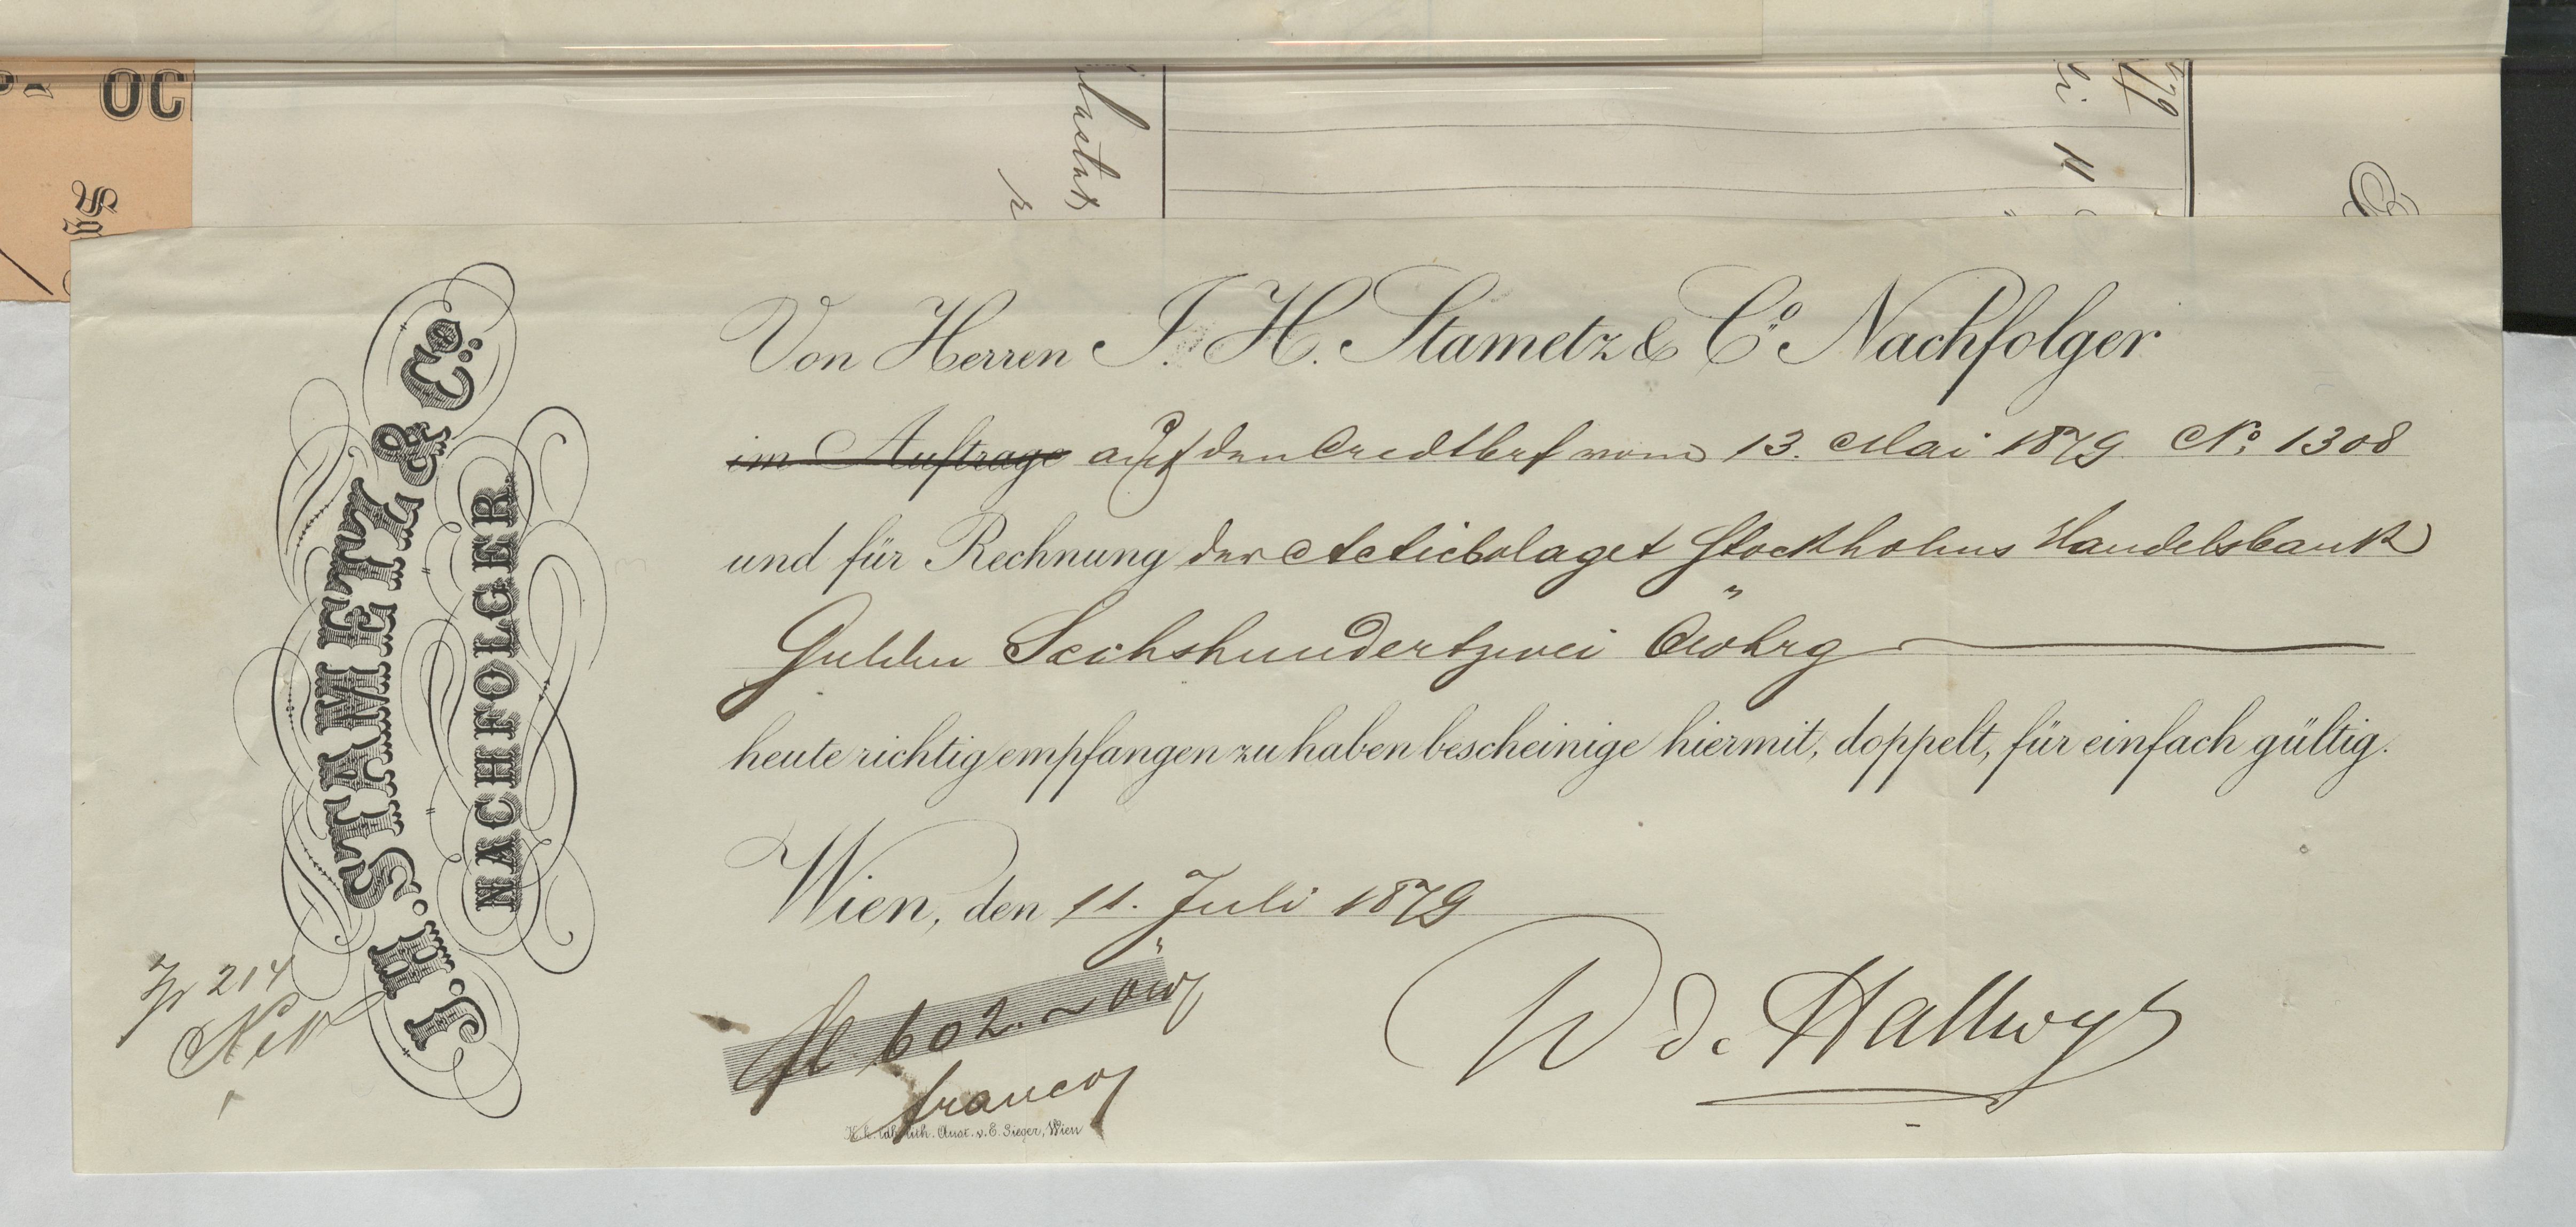 OC
Von Herren J. H. Stametz & Co. Nachfolger
im Auftrage auf den Credtbrf vom 13. Mai 1879 No. 1308
und für Rechnung der Actiebolaget Stockholms Handelsbank
Gulden Sechshundertzwei öwhrg
heute richtig empfangen zu haben bescheinige hiermit, doppelt, für einfach gültig.
Wien, den 11. Juli 1879
fl 602. ~ öw
franco
W d. Hallwyl
K. k. lith. Anst. v. E. Sieger, Wien
J. H. STAMETZ & Co.
NACHFOLGER
214